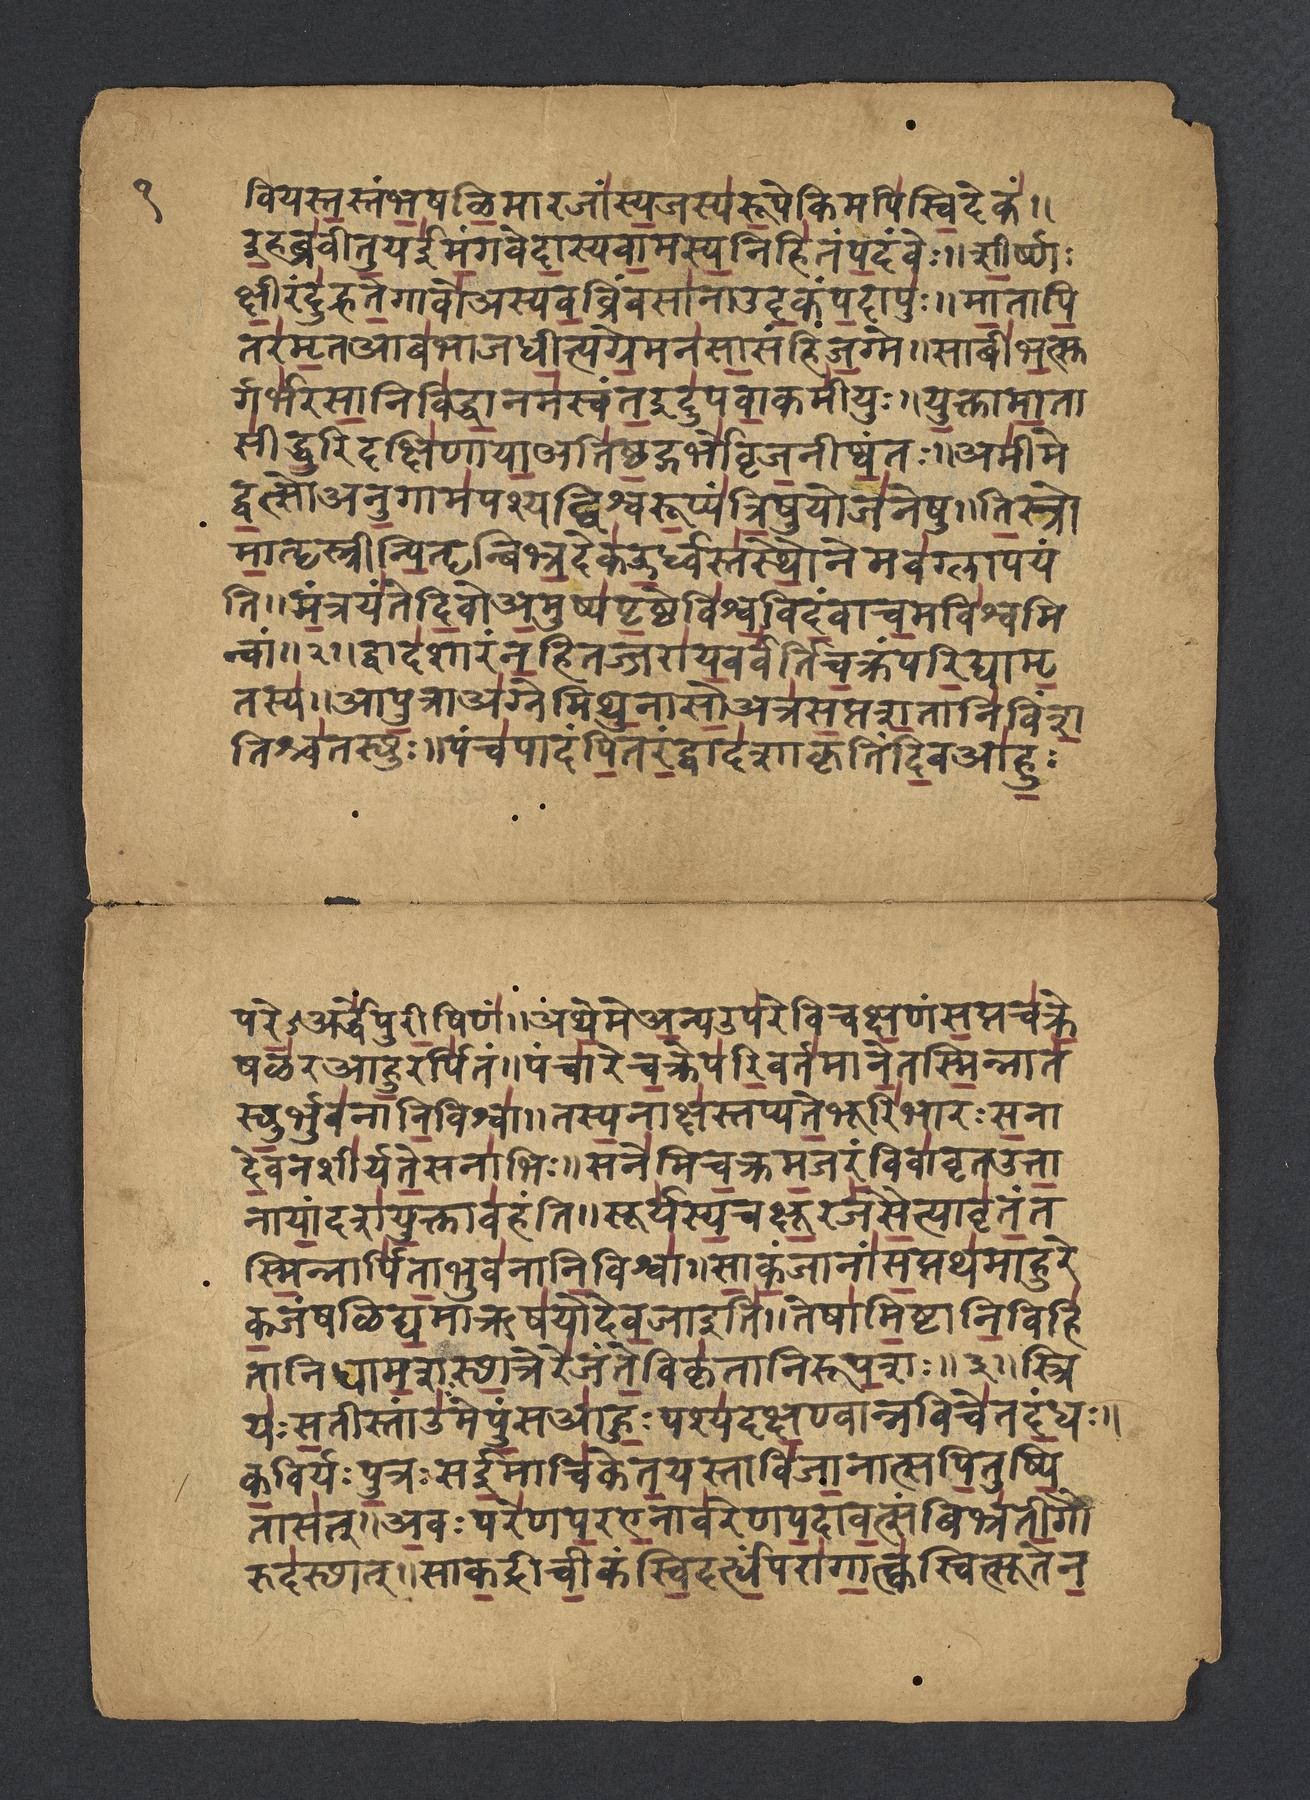 १
वियस्तस्तंभषळिमारजांस्यजस्यरूपेकिमपिस्विदेकं॥
इहब्रवीतुयईमंगवेदास्यवामस्यनिहितंपदंवेः॥शीर्ष्णः
क्षीरंदुह्रतेगावोअस्यवव्रिंवसानाउदकंपदापुः॥मातापि
तरमृतआबभाजधीत्यग्रेमनसासंहिजग्मे॥साबीभत्सु
र्गर्भरसानिविद्धानमस्वंतइदुपवाकमीयुः॥युक्तामाता
सीद्धुरिदक्षिणायाअतिष्ठद्गर्भोवृजनीष्वंतः॥अमीमे
द्वत्सोअनुगामपश्यद्विश्वरूप्यंत्रिषुयोजनेषु॥तिस्त्रो
मातॄस्त्रीन्पितॄन्बिभ्रदेकऊर्ध्वस्तस्थौनेमवग्लापयं
ति॥मंत्रयंतेदिवोअमुष्यपृष्ठेविश्वविदंवाचमविश्वमि
न्वां॥२॥द्वादशारंनहितज्जरायवर्वर्तिचक्रंपरिद्यामृ
तस्य॥आपुत्राअग्नेमिथुनासोअत्रसप्तशतानिविंश
तिश्चतस्थुः॥पंचपादंपितरंद्वादशाकृतिंदिवआहुः
परेऽअर्द्धेपुरीषिणं॥अथेमेअन्यउपरेविचक्षणंसप्तचक्रे
षळरआहुरर्पितं॥पंचारेचक्रेपरिवर्तमानेतस्मिन्नात
स्थुर्भुवनानिविश्वा॥तस्यनाक्षस्तप्यतेभूरिभारःसना
देवनशीर्यतेसनाभिः॥सनेमिचक्रमजरंविवावृतउत्ता
नायांदशयुक्तावहंति॥सूर्यस्यचक्षूरजसैत्यावृतंत
स्मिन्नार्पिताभुवनानिविश्वा॥साकंजानांसप्तथमाहुरे
कजंषळिद्यमाऋषयोदेवजाइति॥तेषामिष्टानिविहि
तानिधामशःस्थात्रेरेजंतेविकृतानिरूपशः॥३॥स्त्रि
यःसतीस्तांउमेपुंसआहुःपश्यदक्षण्वान्नविचेतदंधः॥
कविर्यःपुत्रःसईमाचिकेतयस्ताविजानात्सपितुष्पि
तासत्॥अवःपरेणपरएनावरेणपदावत्संबिभ्रतीगौ
रुदस्थात्॥साकद्रीचीकंस्विदर्धंपरागात्क्वस्वित्सूतेन